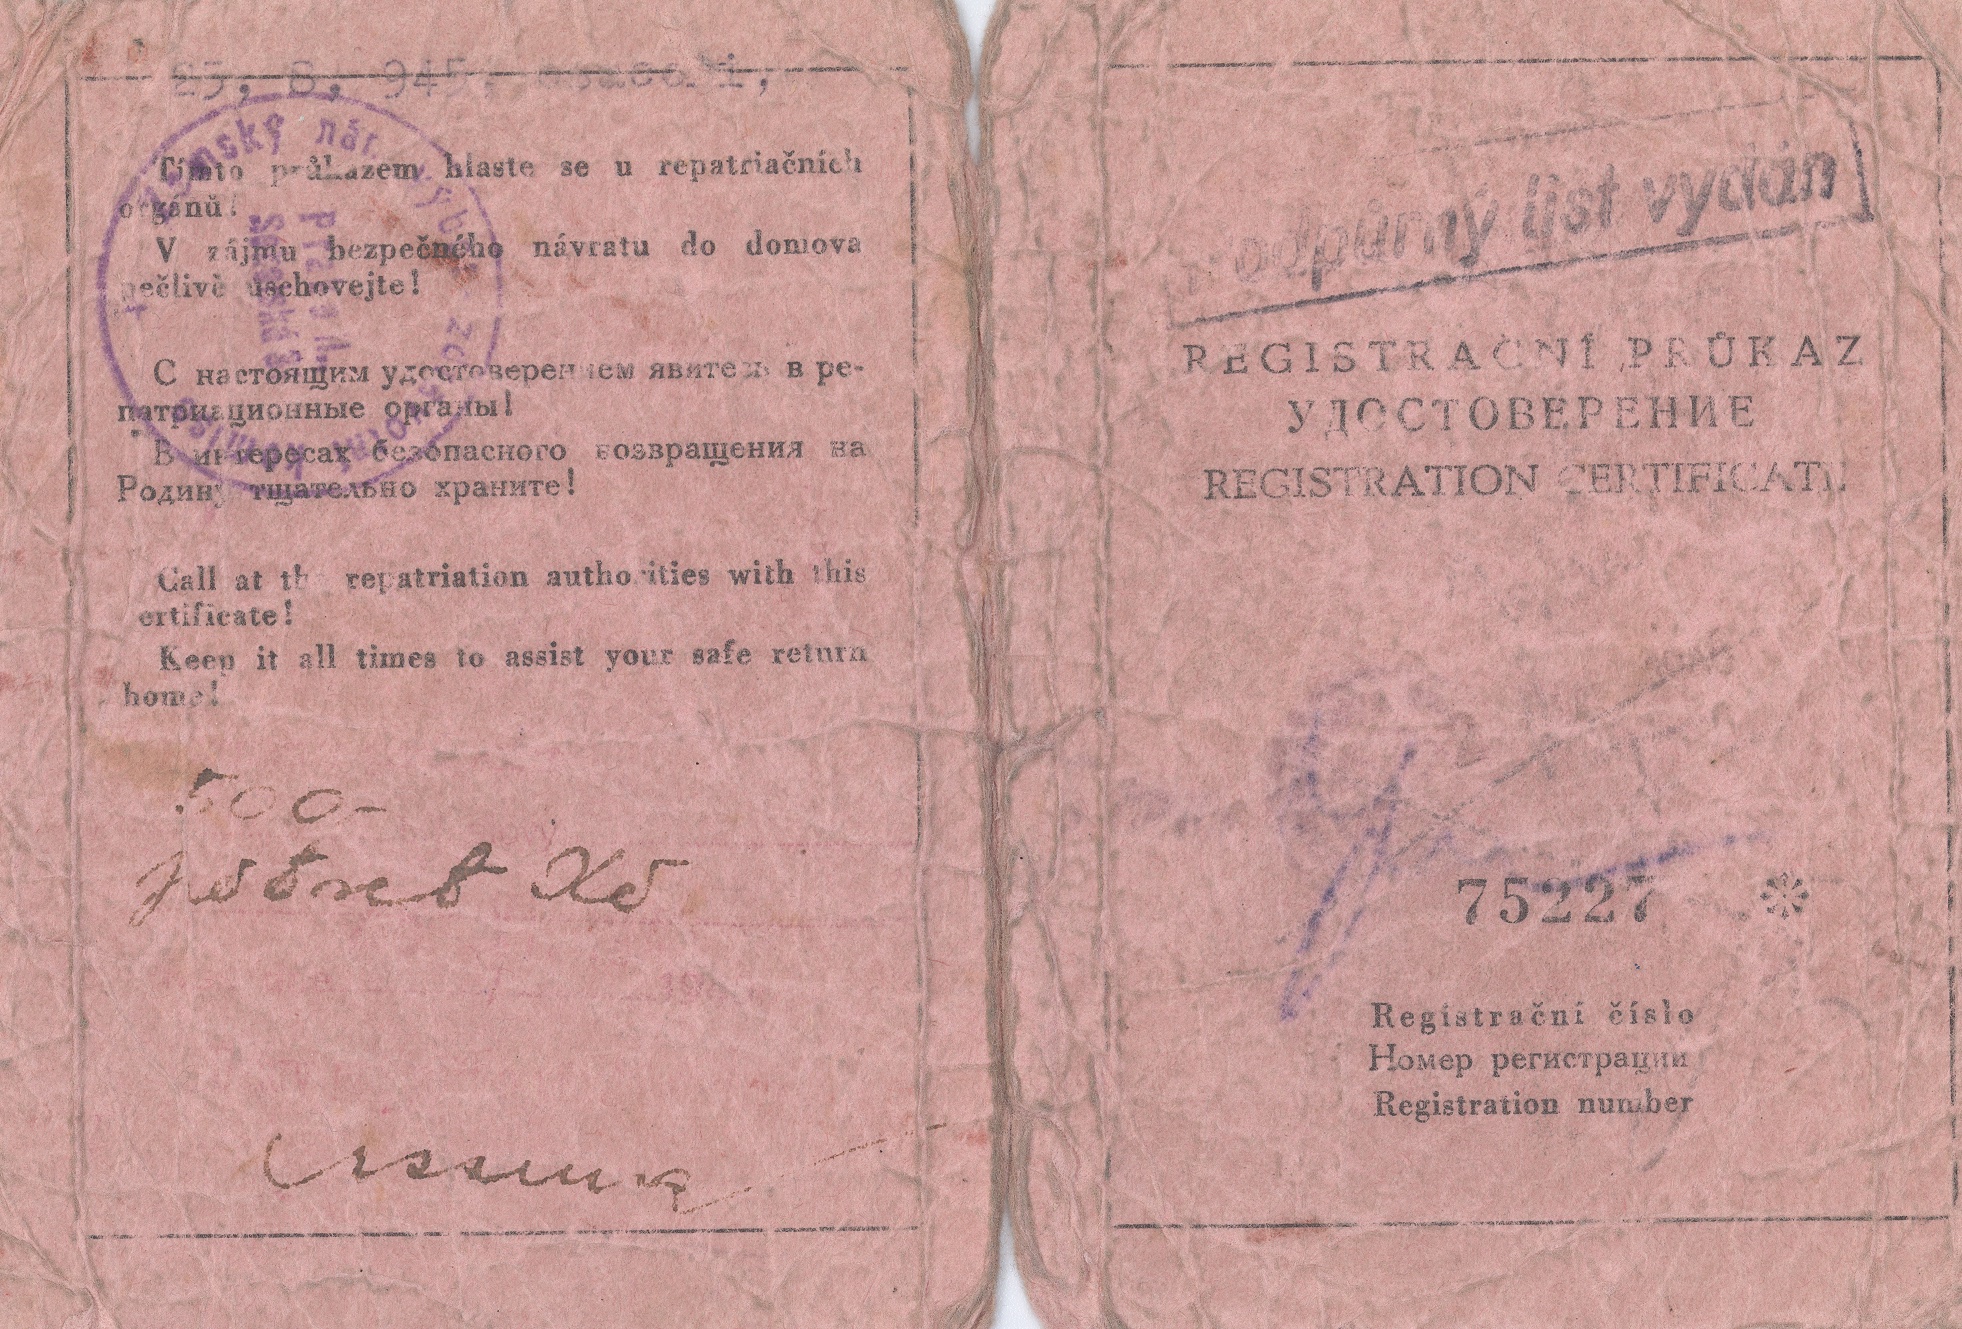 25, 8, 945,
Tímto průkazem hlaste se u repatriačních
orgánů!
V zájmu bezpečného návratu do domova
pečlivě uschovejte!
С настоящим удостоверением явитесь в ре-
патриационные органы!
В интересах безопасного возвращения на
Родину тщательно храните!
Call at the repatriation authorities with this
certificate!
Keep it all times to assist your safe return
home!
500-
odpůrný list vydán
REGISTRAČNÍ PRŮKAZ
УДОСТОВЕРЕНИЕ
REGISTRATION CERTIFICATE
75227
Registrační číslo
Номер регистрации
Registration number